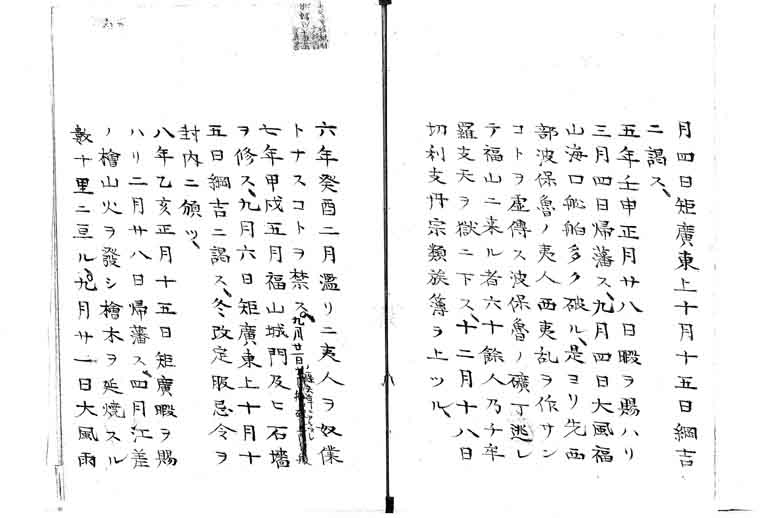 月四日矩廣東上十月十五日綱吉
ニ謁ス、
五年壬申正月廿八日暇ヲ賜ハリ
三月四日帰藩ス、九月四日大風福
山海口舩舶多ク破ル、是ヨリ先西
部波保魯ノ夷人西夷乱ヲ作サン
コトヲ虚傳ス波保魯ノ礦丁逃レ
テ福山ニ来ル者六十餘人乃チ牟
羅支天ヲ獄ニ下ス、十二月十八日
切利支丹宗類族簿ヲ上ツル、
六年癸酉二月濫リニ夷人ヲ奴僕
トナスコトヲ禁ス、九月廿一日
七年甲戌五月福山城門及ヒ石墻
ヲ修ス、九月六日矩廣東上十月十
五日綱吉ニ謁ス、冬改定服忌令ヲ
封内ニ頒ツ、
八年乙亥正月十五日矩廣暇ヲ賜
ハリ二月廿八日帰藩ス、四月江差
ノ檜山火ヲ發シ檜木ヲ延焼スル
數十里ニ亘ル、九月廿一日大風雨